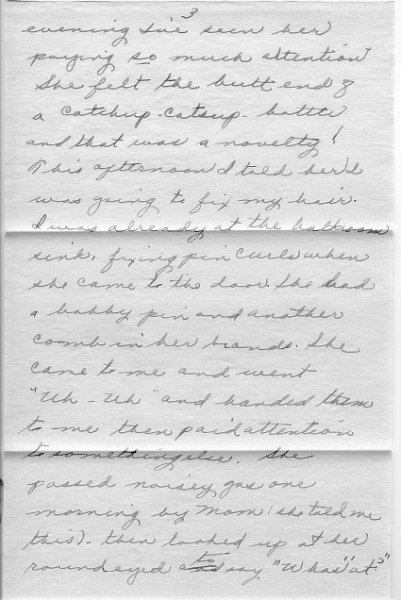 3
evening I've seen her
paying so much attention
She felt the butt end of
a catchup-catsup-bottle
and that was a novelty!
This afternoon I told her I
was going to fix my hair.
I was already at the bathroom
sink, fixing pin curls when
she came to the door. She had
a bobby pin and another
comb in her hands. She
came to me and went
"Uh-Uh" and handed them
to me then paid attention
to something else. She
passed noisey gas one
morning by Mom (she told me
this) - then looked up at her
round eyed to say "Whas' 'at?"